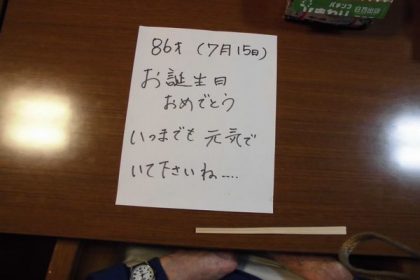 86才(7月15日)
お誕生日
おめでとう
いつまでも元気で
いて下さいね....
パチンコ
ひまわり